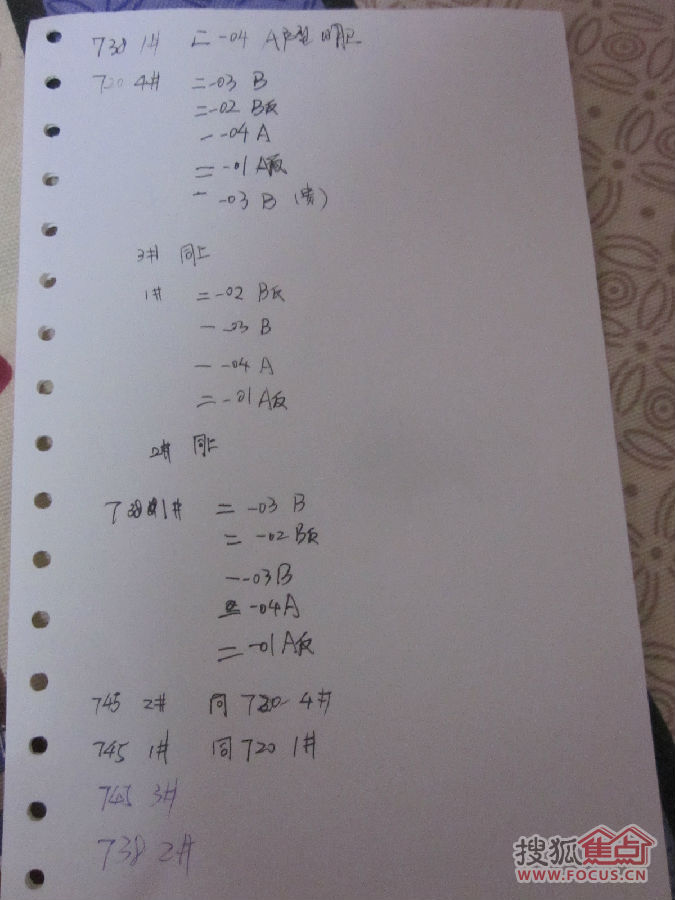 738 1# 二-04 A户型 明卫
720 4# 二-03 B
二-02 B反
一-04 A
二-01 A反
一-03 B (责)
3# 同上
1# 二-02 B反
一-03 B
一-04 A
二-01 A反
2# 同上
738 1# 二-03 B
二-02 B反
一-03B
-04A
二-01 A反
745 2# 同 720 4#
745 1# 同 720 1#
745 3#
738 2#
搜狐焦点
WWW.FOCUS.CN